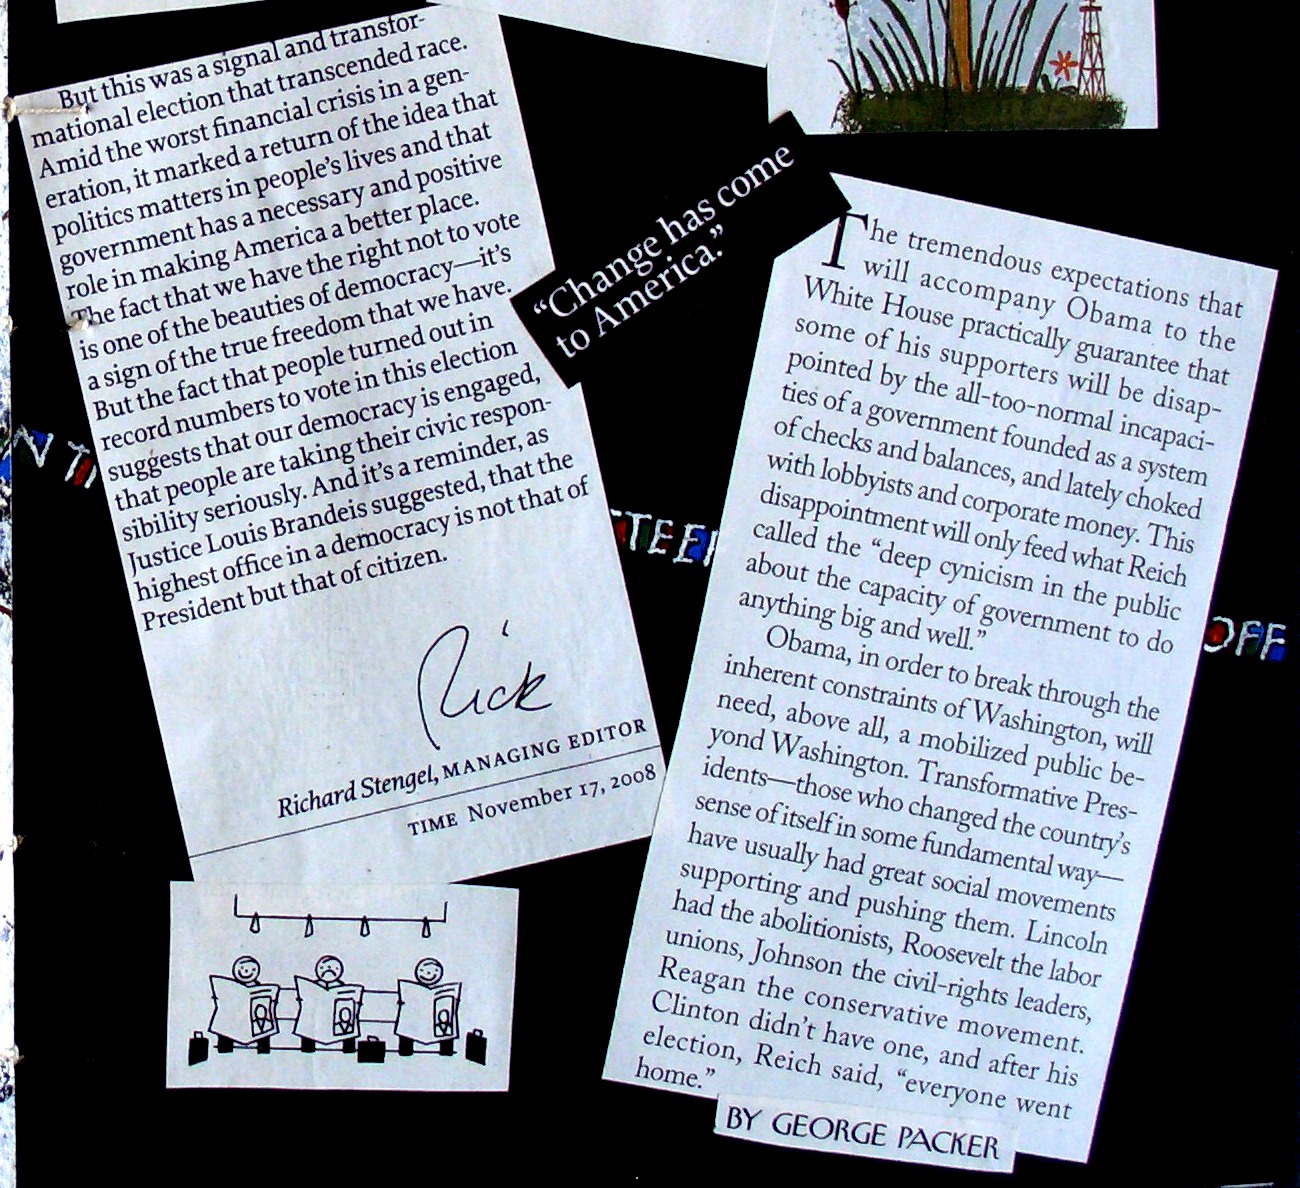 But this was a signal and transfor-
mational election that transcended race.
Amid the worst financial crisis in a gen-
eration, it marked a return of the idea that
politics matters in people's lives and that
government has a necessary and positive
role in making America a better place.
The fact that we have the right not to vote
is one of the beauties of democracy—it's
a sign of the true freedom that we have.
But the fact that people turned out in
record numbers to vote in this election
suggests that our democracy is engaged,
that people are taking their civic respon-
sibility seriously. And it's a reminder, as
Justice Louis Brandeis suggested, that the
highest office in a democracy is not that of
President but that of citizen.
Rick
Richard Stengel, MANAGING EDITOR
TIME November 17, 2008
“Change has come
to America.”
The tremendous expectations that
will accompany Obama to the
White House practically guarantee that
some of his supporters will be disap-
pointed by the all-too-normal incapaci-
ties of a government founded as a system
of checks and balances, and lately choked
with lobbyists and corporate money. This
disappointment will only feed what Reich
called the “deep cynicism in the public
about the capacity of government to do
anything big and well.”
Obama, in order to break through the
inherent constraints of Washington, will
need, above all, a mobilized public be-
yond Washington. Transformative Pres-
idents—those who changed the country's
sense of itself in some fundamental way—
have usually had great social movements
supporting and pushing them. Lincoln
had the abolitionists, Roosevelt the labor
unions, Johnson the civil-rights leaders,
Reagan the conservative movement.
Clinton didn't have one, and after his
election, Reich said, “everyone went
home.”
BY GEORGE PACKER
OFF